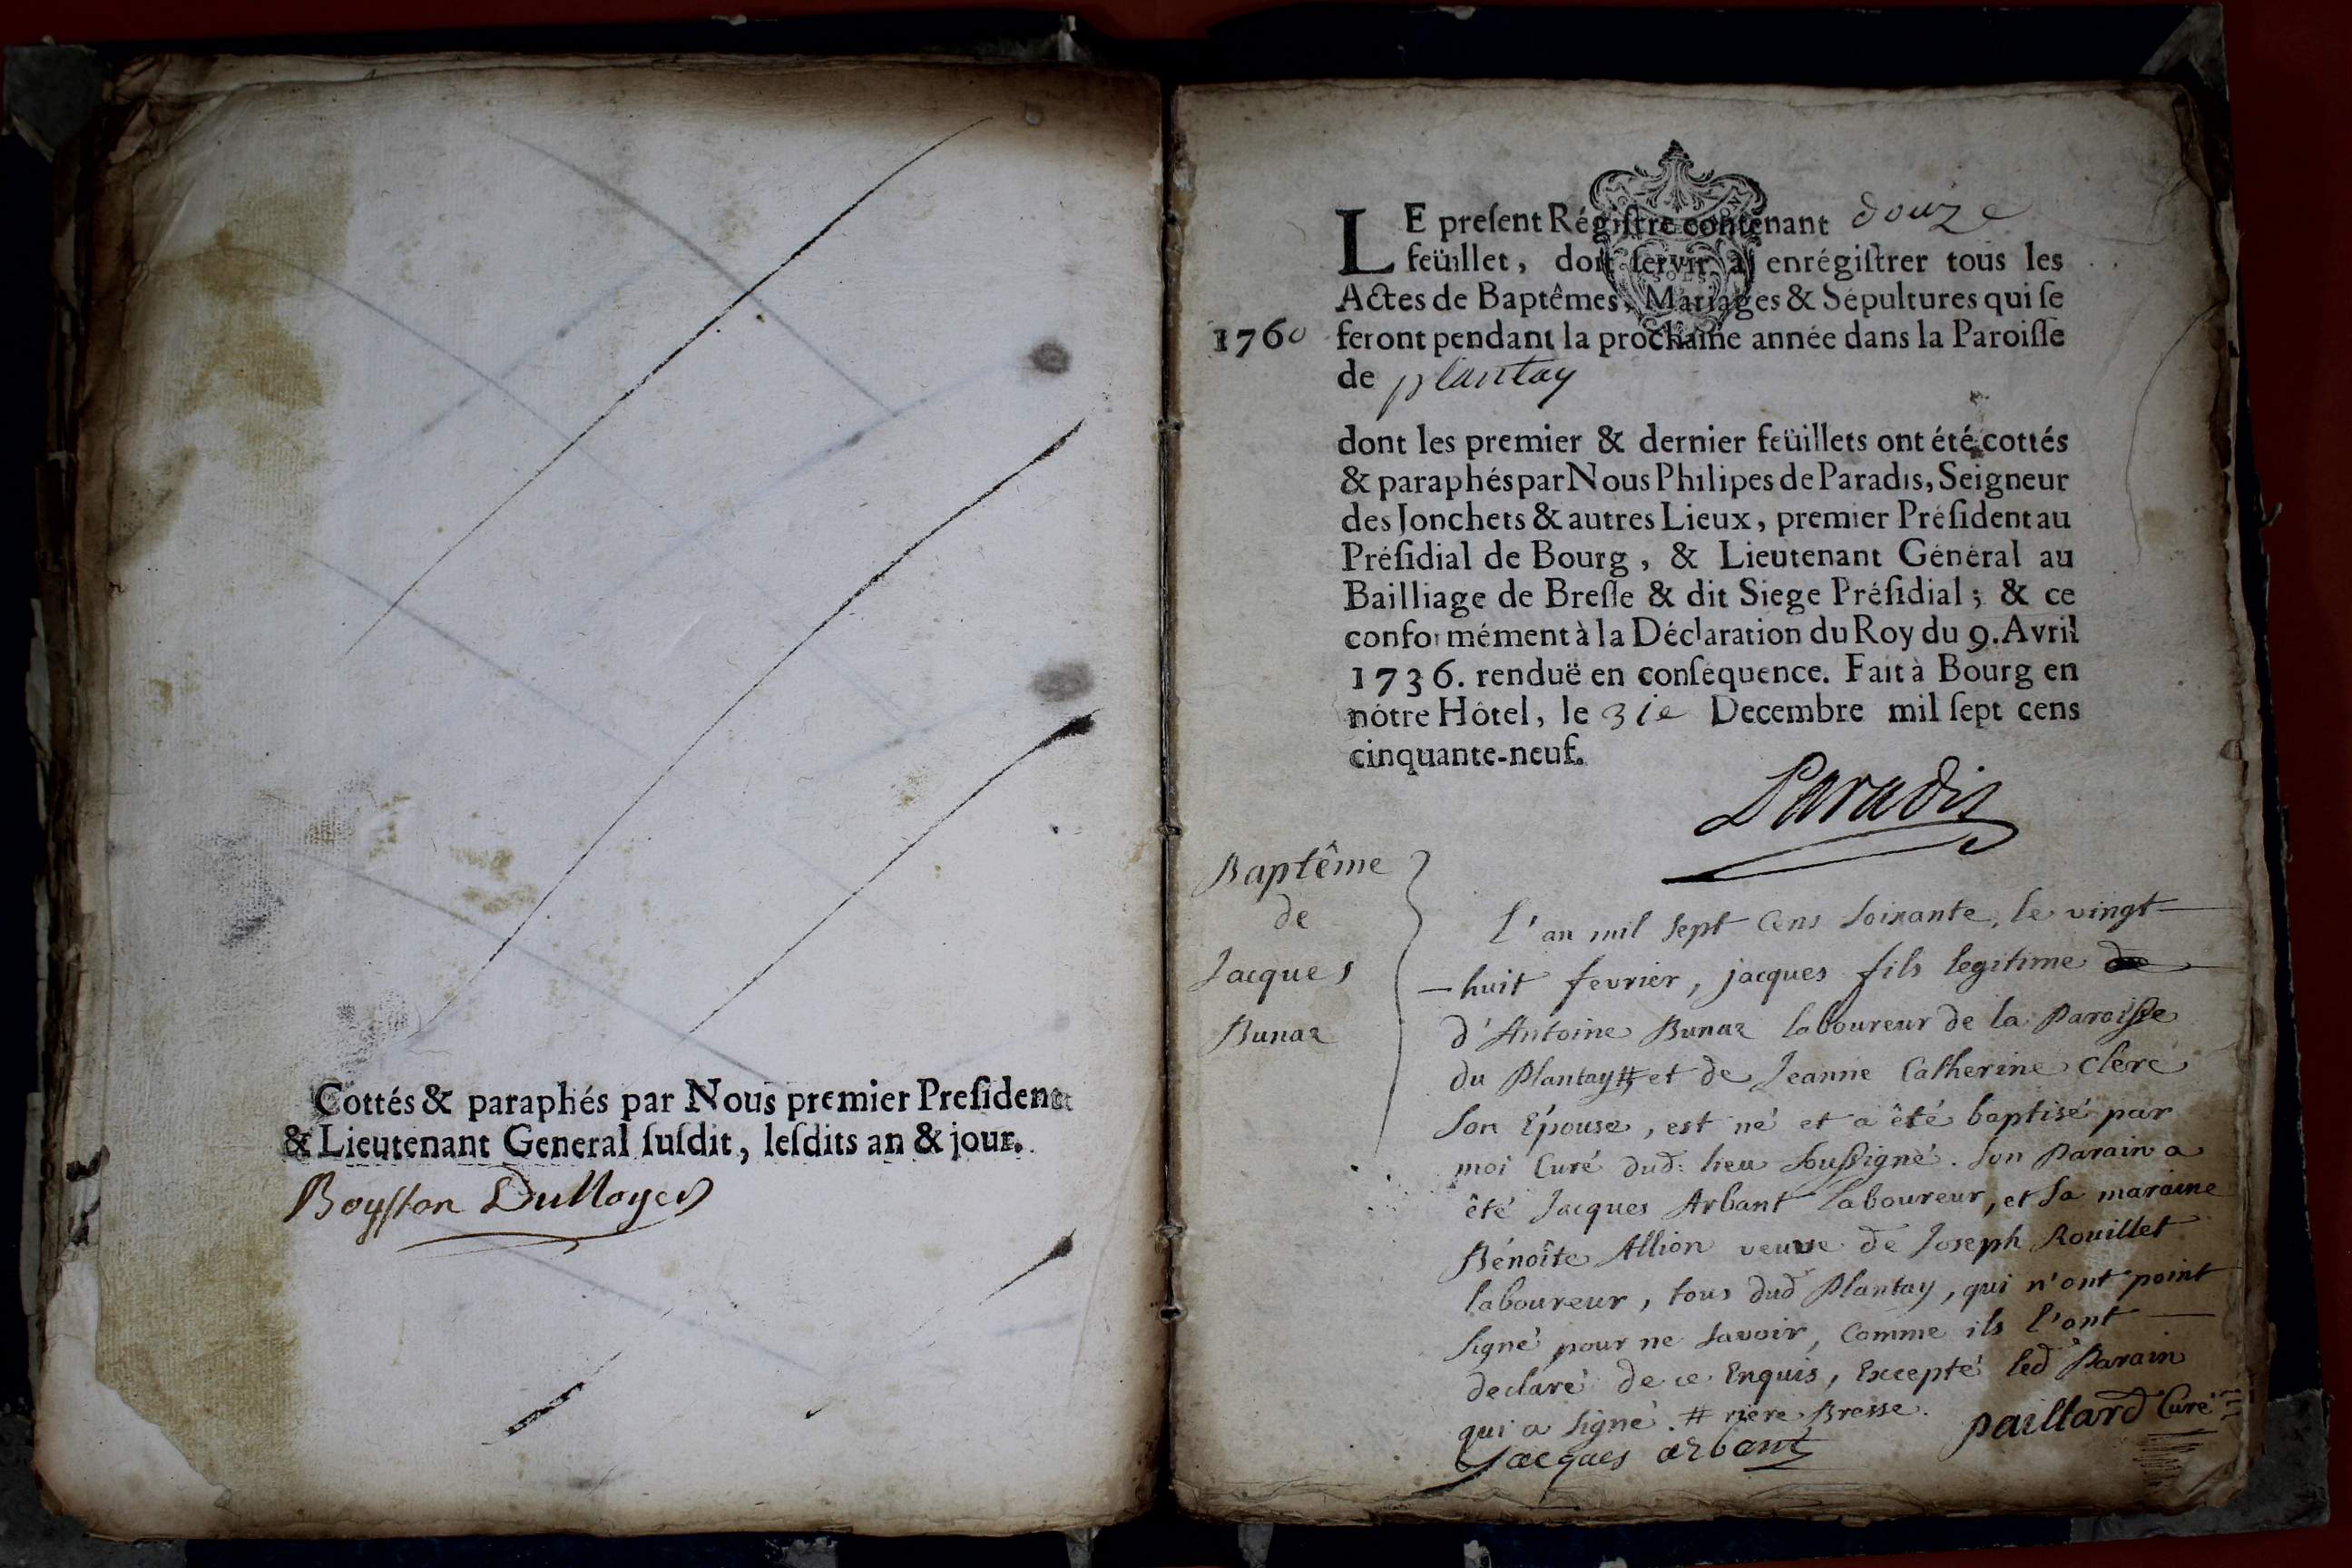 Cottés & paraphés par Nous premier Preſident
& Lieutenant General ſuſdit, leſdits an & jour.
LE preſent Régiſtre contenant douze
feüillet, doit ſervir à enrégiſtrer tous les
Actes de Baptêmes, Mariages & Sépultures qui ſe
1760 feront pendant la prochaine année dans la Paroiſſe
de plantay
dont les premier & dernier feüillets ont été cottés
& paraphés par Nous Philipes de Paradis, Seigneur
des Jonchets & autres Lieux, premier Préſident au
Préſidial de Bourg, & Lieutenant Général au
Bailliage de Breſſe & dit Siege Préſidial; & ce
conformément à la Déclaration du Roy du 9. Avril
1736. renduë en conſéquence. Fait à Bourg en
nôtre Hôtel, le 31e Decembre mil ſept cens
cinquante-neuf.
Paradis
Baptême
de
Jacques
Bunaz
L'an mil sept Cens soixante, le vingt-
-huit fevrier, jacques fils legitime de
d'Antoine Bunaz laboureur de la Paroisse
du Plantay#, et de Jeanne Catherine Clerc
son Épouse, est né et a êté baptisé par
moi Curé dud: lieu soussigné. son Parain a
êté Jacques Arbant laboureur, et sa maraine
Bénoîte Allion veuve de Joseph Rouillet
laboureur, tous dud Plantay, qui n'ont point
signé pour ne savoir, Comme ils l'ont
declaré de ce Enquis, Excepté led Parain
qui a signé. # riere Bresse.
Jacques arbant
paillard Curé